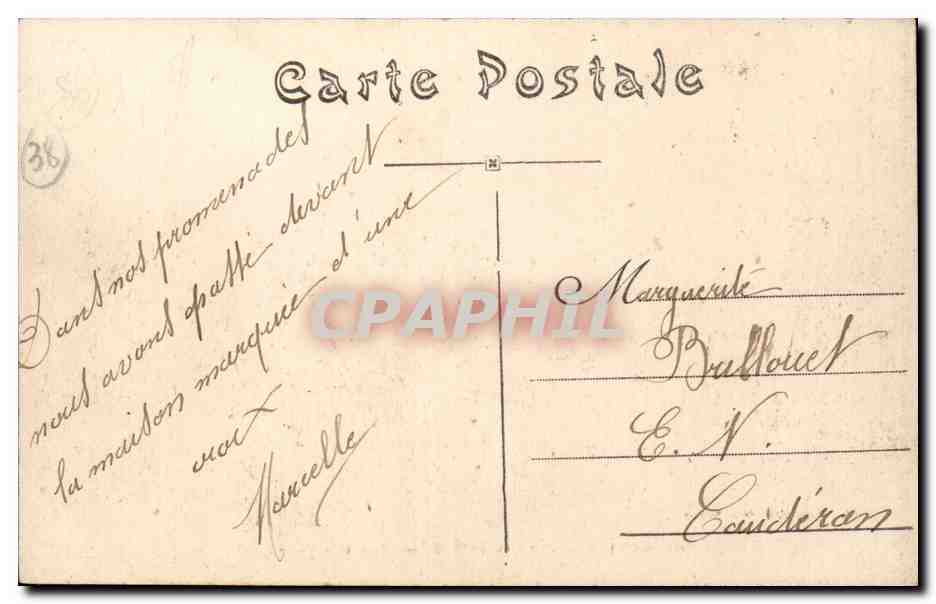 Carte Postale
38
Dans nos promenades
nous avons passé devant
la maison marquée d'une
croix
Marcelle
CPAPHIL
Marguerite
Ballouet
E. N.
Caudéran